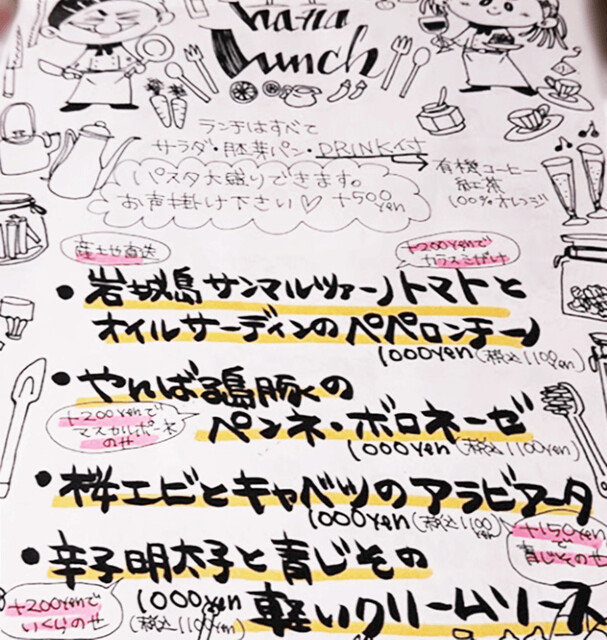 Lunch
ランチはすべて
サラダ・胚芽パン・DRINK付
パスタ大盛りできます。
お声掛け下さい♡ +500yen
有機コーヒー
紅茶
100%オレンジ
産地直送
+200yenで
カラスミがけ
・岩城島サンマルツァーノトマトと
オイルサーディンのペペロンチーノ
1000yen(税込1100yen)
・やんばる島豚の
ペンネ・ボロネーゼ
+200yenで
マスカルポーネ
のせ
1000yen(税込1100yen)
・桜エビとキャベツのアラビアータ
1000yen(税込1100yen)
+150yen
で
青じそのせ
・辛子明太子と青じその
軽いクリームソース
1000yen
(税込1100yen)
+200yenで
いくらのせ